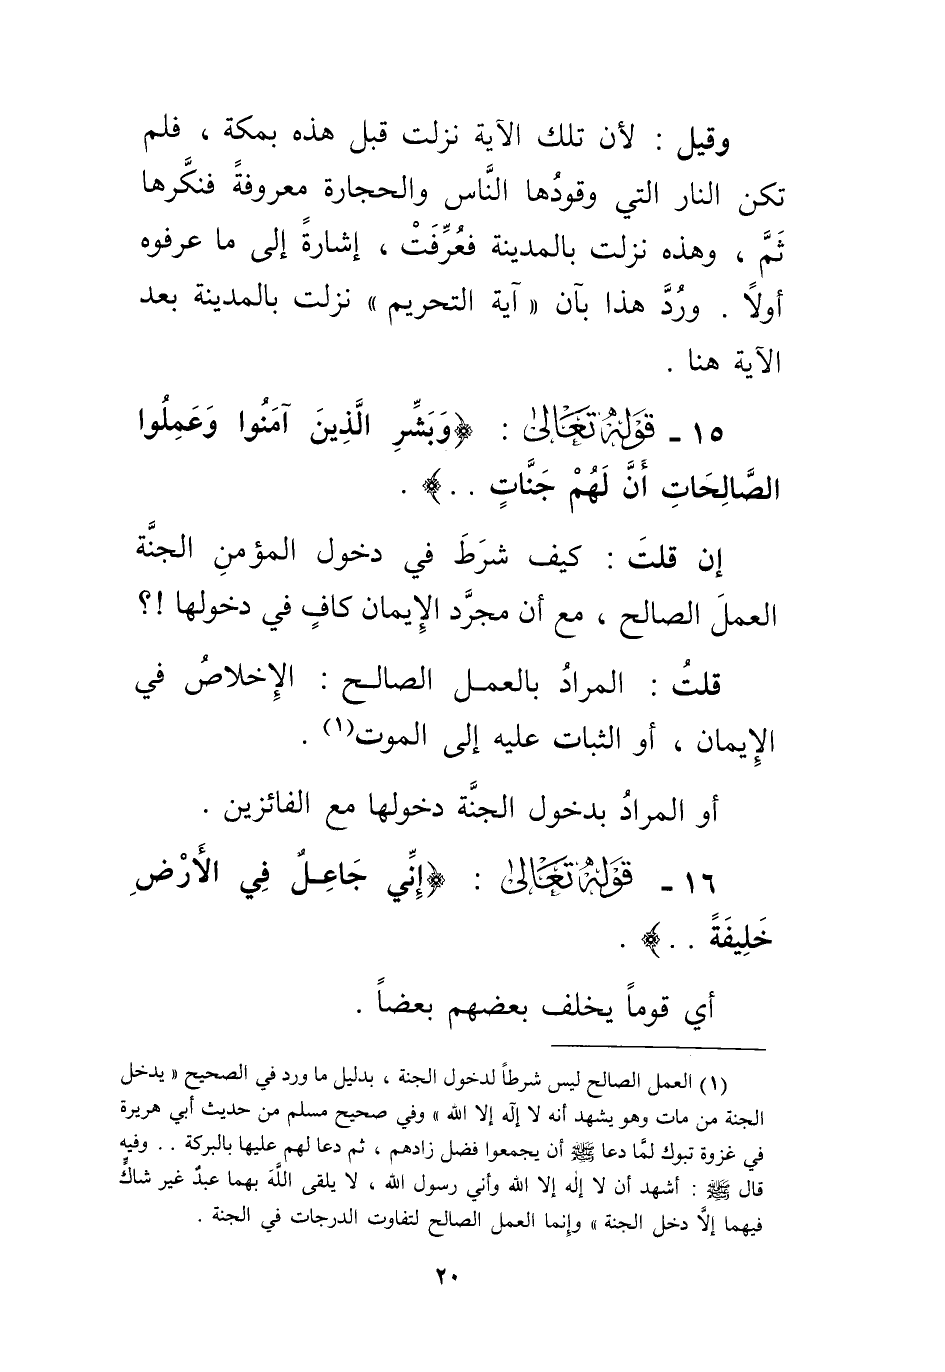 وقيل : لأن تلك الآية نزلت قبل هذه بمكة ، فلم
تكن النار التي وقودُها النَّاس والحجارة معروفةً فنكَّرها
ثَمَّ ، وهذه نزلت بالمدينة فعُرِّفَتْ ، إشارةً إلى ما عرفوه
أولاً . ورُدَّ هذا بآن « آية التحريم » نزلت بالمدينة بعد
الآية هنا .
١٥ ـ قَوْلُهُ تَعَالَىٰ : ﴿وَبَشِّرِ الَّذِينَ آمَنُوا وَعَمِلُوا
الصَّالِحَاتِ أَنَّ لَهُمْ جَنَّاتٍ . . .﴾ .
إن قلتَ : كيف شرَطَ في دخول المؤمنِ الجنَّة
العملَ الصالح ، مع أن مجرَّد الإِيمان كافٍ في دخولها !؟
قلتُ : المرادُ بالعمـل الصالـح : الإِخلاصُ في
الإِيمان ، أو الثبات عليه إلى الموت(١) .
أو المرادُ بدخول الجنَّة دخولها مع الفائزين .
١٦ ـ قَوْلُهُ تَعَالَىٰ : ﴿إِنِّي جَاعِـلٌ فِي الأَرْضِ
خَلِيفَةً . . .﴾ .
أي قوماً يخلف بعضهم بعضاً .
(١) العمل الصالح ليس شرطاً لدخول الجنة ، بدليل ما ورد في الصحيح « يدخل
الجنة من مات وهو يشهد أنه لا إلٰه إلا الله » وفي صحيح مسلم من حديث أبي هريرة
في غزوة تبوك لمَّا دعا ﷺ أن يجمعوا فضل زادهم ، ثم دعا لهم عليها بالبركة . . وفيه
قال ﷺ : أشهد أن لا إلٰه إلا الله وأني رسول الله ، لا يلقى اللَّهَ بهما عبدٌ غير شاكٍّ
فيهما إلاَّ دخل الجنة » وإنما العمل الصالح لتفاوت الدرجات في الجنة .
٢٠